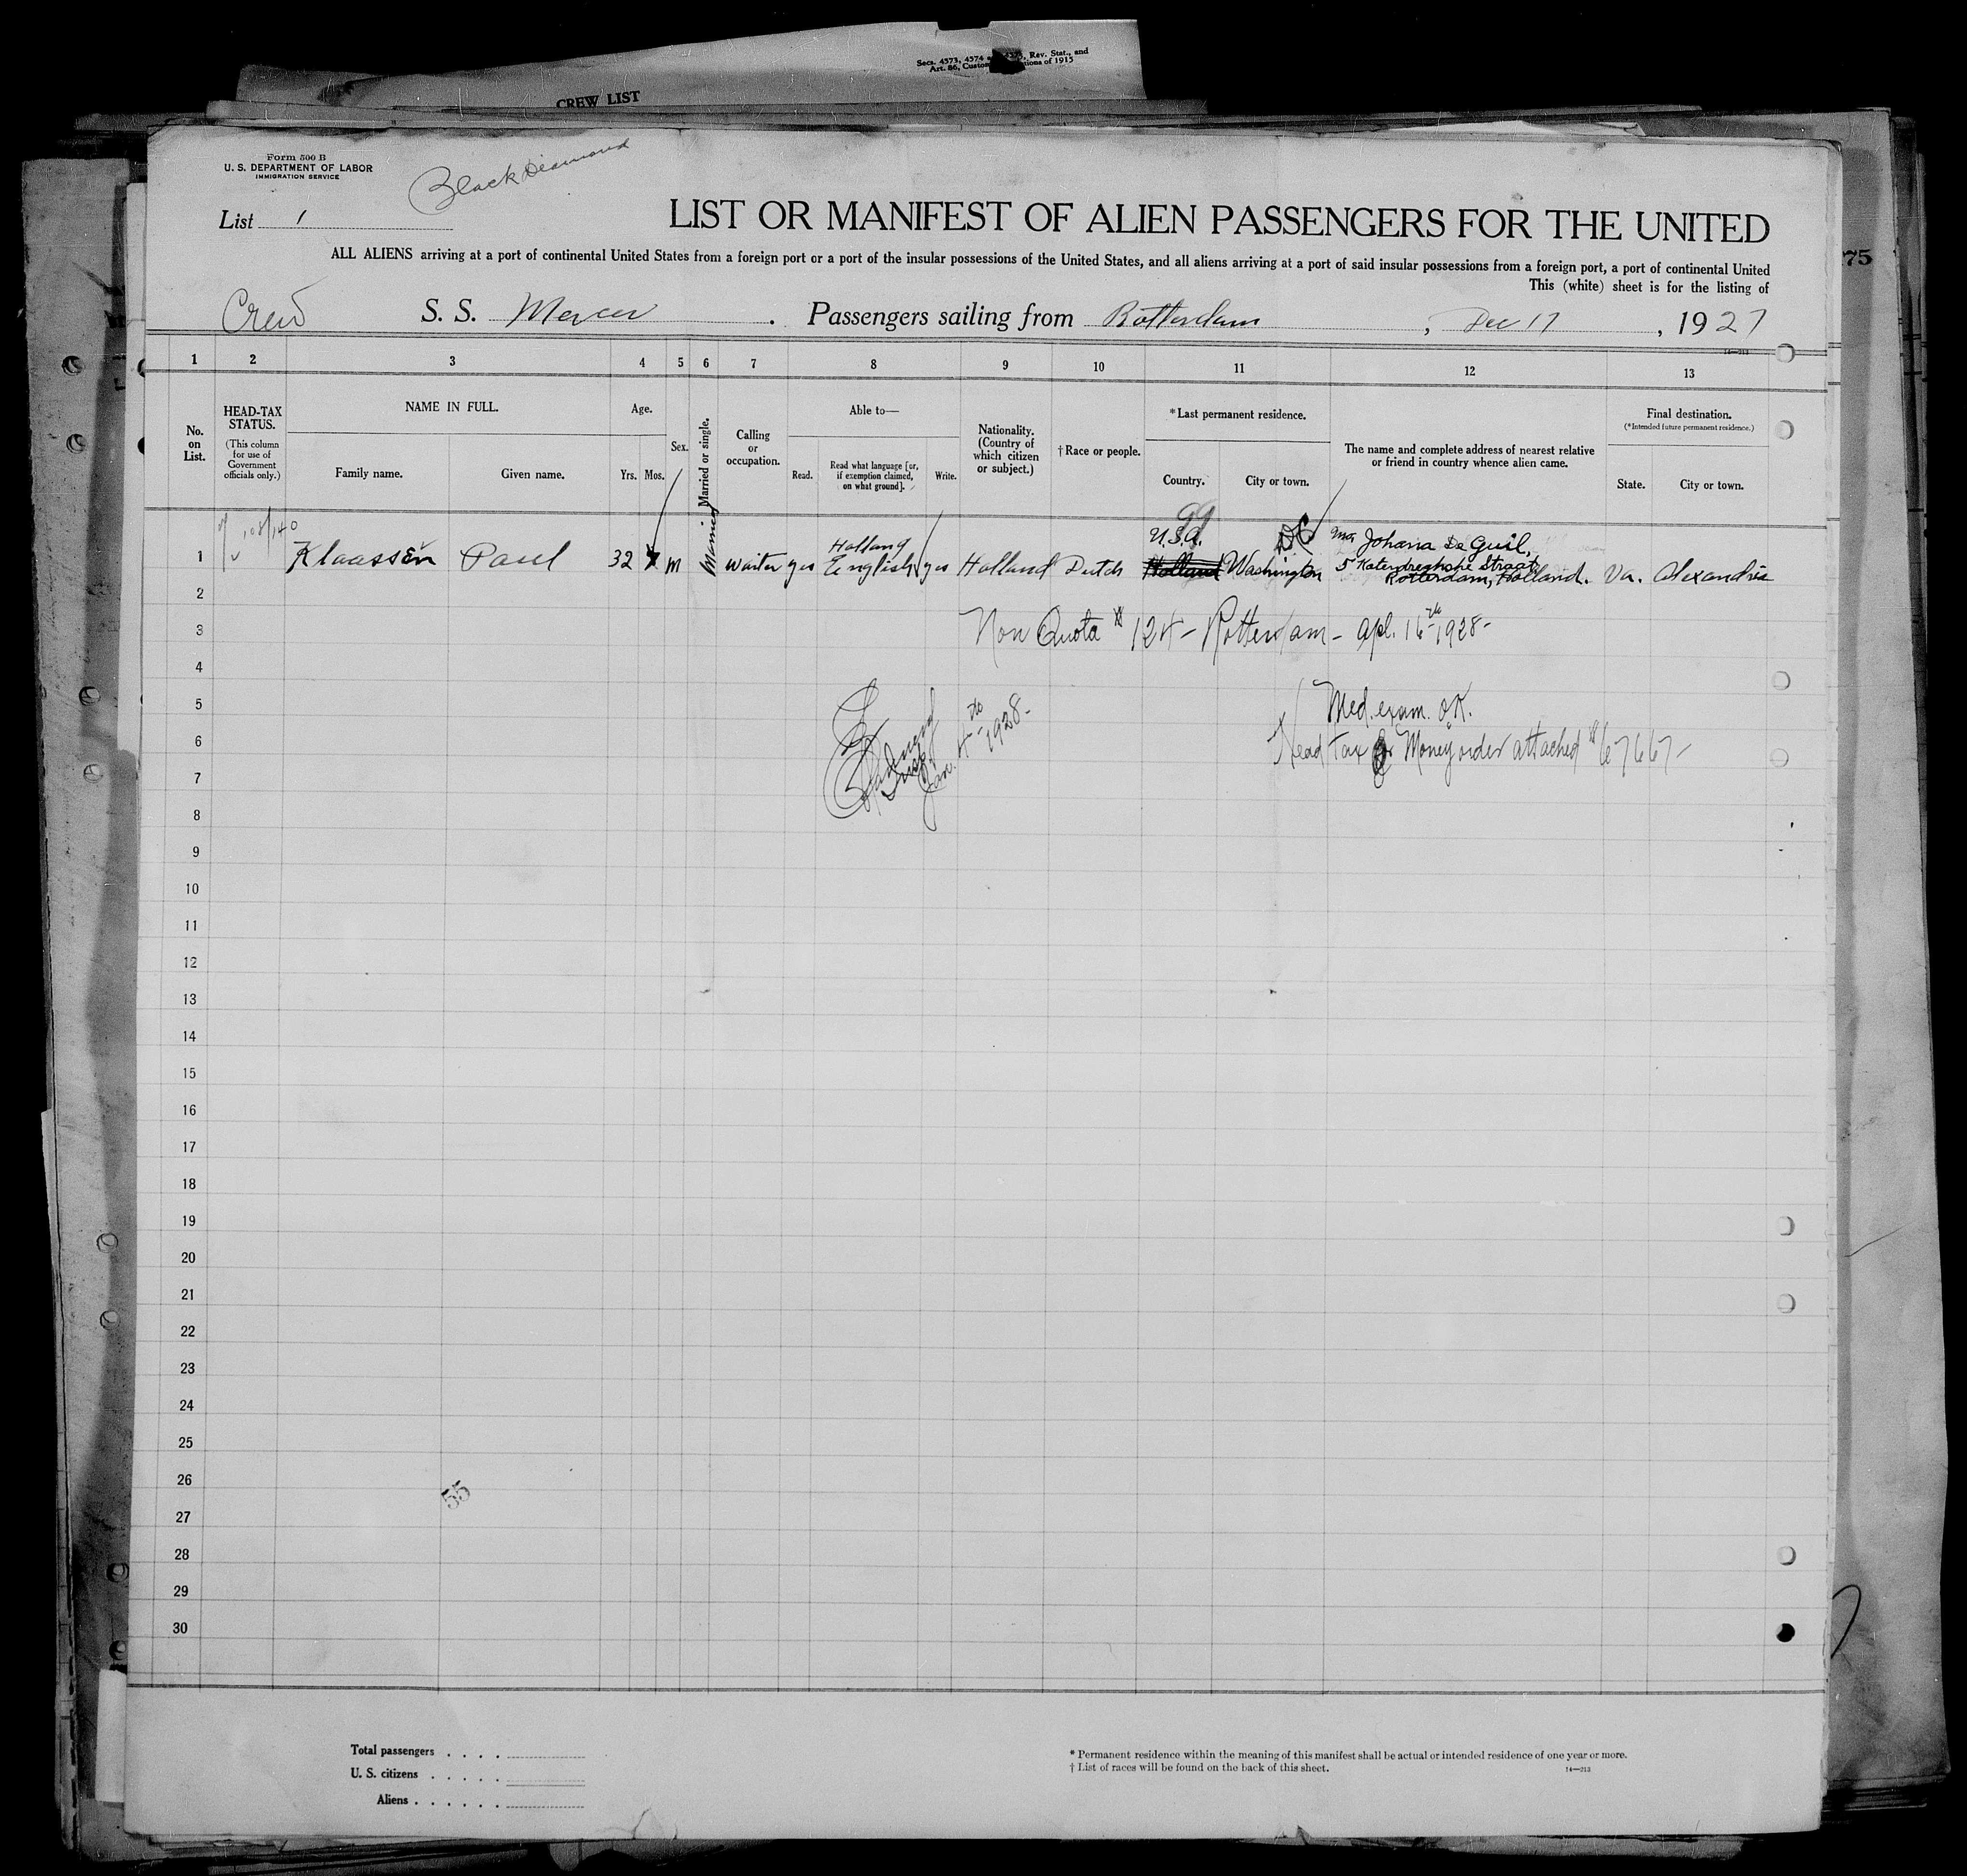 Secs. 4573, 4574 Rev. Stat., and
Art. 86, of 1915
CREW LIST
Form 500 B
U. S. DEPARTMENT OF LABOR
IMMIGRATION SERVICE
Black Diamond
List 1
LIST OR MANIFEST OF ALIEN PASSENGERS FOR THE UNITED
ALL ALIENS arriving at a port of continental United States from a foreign port or a port of the insular possessions of the United States, and all aliens arriving at a port of said insular possessions from a foreign port, a port of continental United
This (white) sheet is for the listing of
75
Crew S. S. Mercer . Passengers sailing from Rotterdam , Dec 17 , 1927
14—213
1 2 3 4 5 6 7 8 9 10 11 12 13
No. on List.
HEAD-TAX STATUS.
(This column for use of Government officials only.)
NAME IN FULL.
Family name. Given name.
Age.
Yrs. Mos.
Sex.
Married or single.
Calling or occupation.
Able to—
Read. Read what language [or, if exemption claimed, on what ground]. Write.
Nationality. (Country of which citizen or subject.)
†Race or people.
*Last permanent residence.
Country. City or town.
The name and complete address of nearest relative or friend in country whence alien came.
Final destination.
(*Intended future permanent residence.)
State. City or town.
99
Holland U.S.A. DC Mrs Johana De Guil,
1 Klaassen Paul 32 M Married Waiter yes English yes Holland Dutch Holland Washington 5 Katendreghshe Straat Va. Alexandria
Rotterdam, Holland.
2
3 Non Quota # 124 - Rotterdam - Apl. 16th 1928-
4
5 Med. exam. OK.
6 Head Tax Money order attached # 67667-
7 Insp Jan. 4th 1928-
8
9
10
11
12
13
14
15
16
17
18
19
20
21
22
23
24
25
26
55
27
28
29
30
Total passengers . . . .
U. S. citizens . . . . .
Aliens . . . . . .
* Permanent residence within the meaning of this manifest shall be actual or intended residence of one year or more.
† List of races will be found on the back of this sheet.
14—213